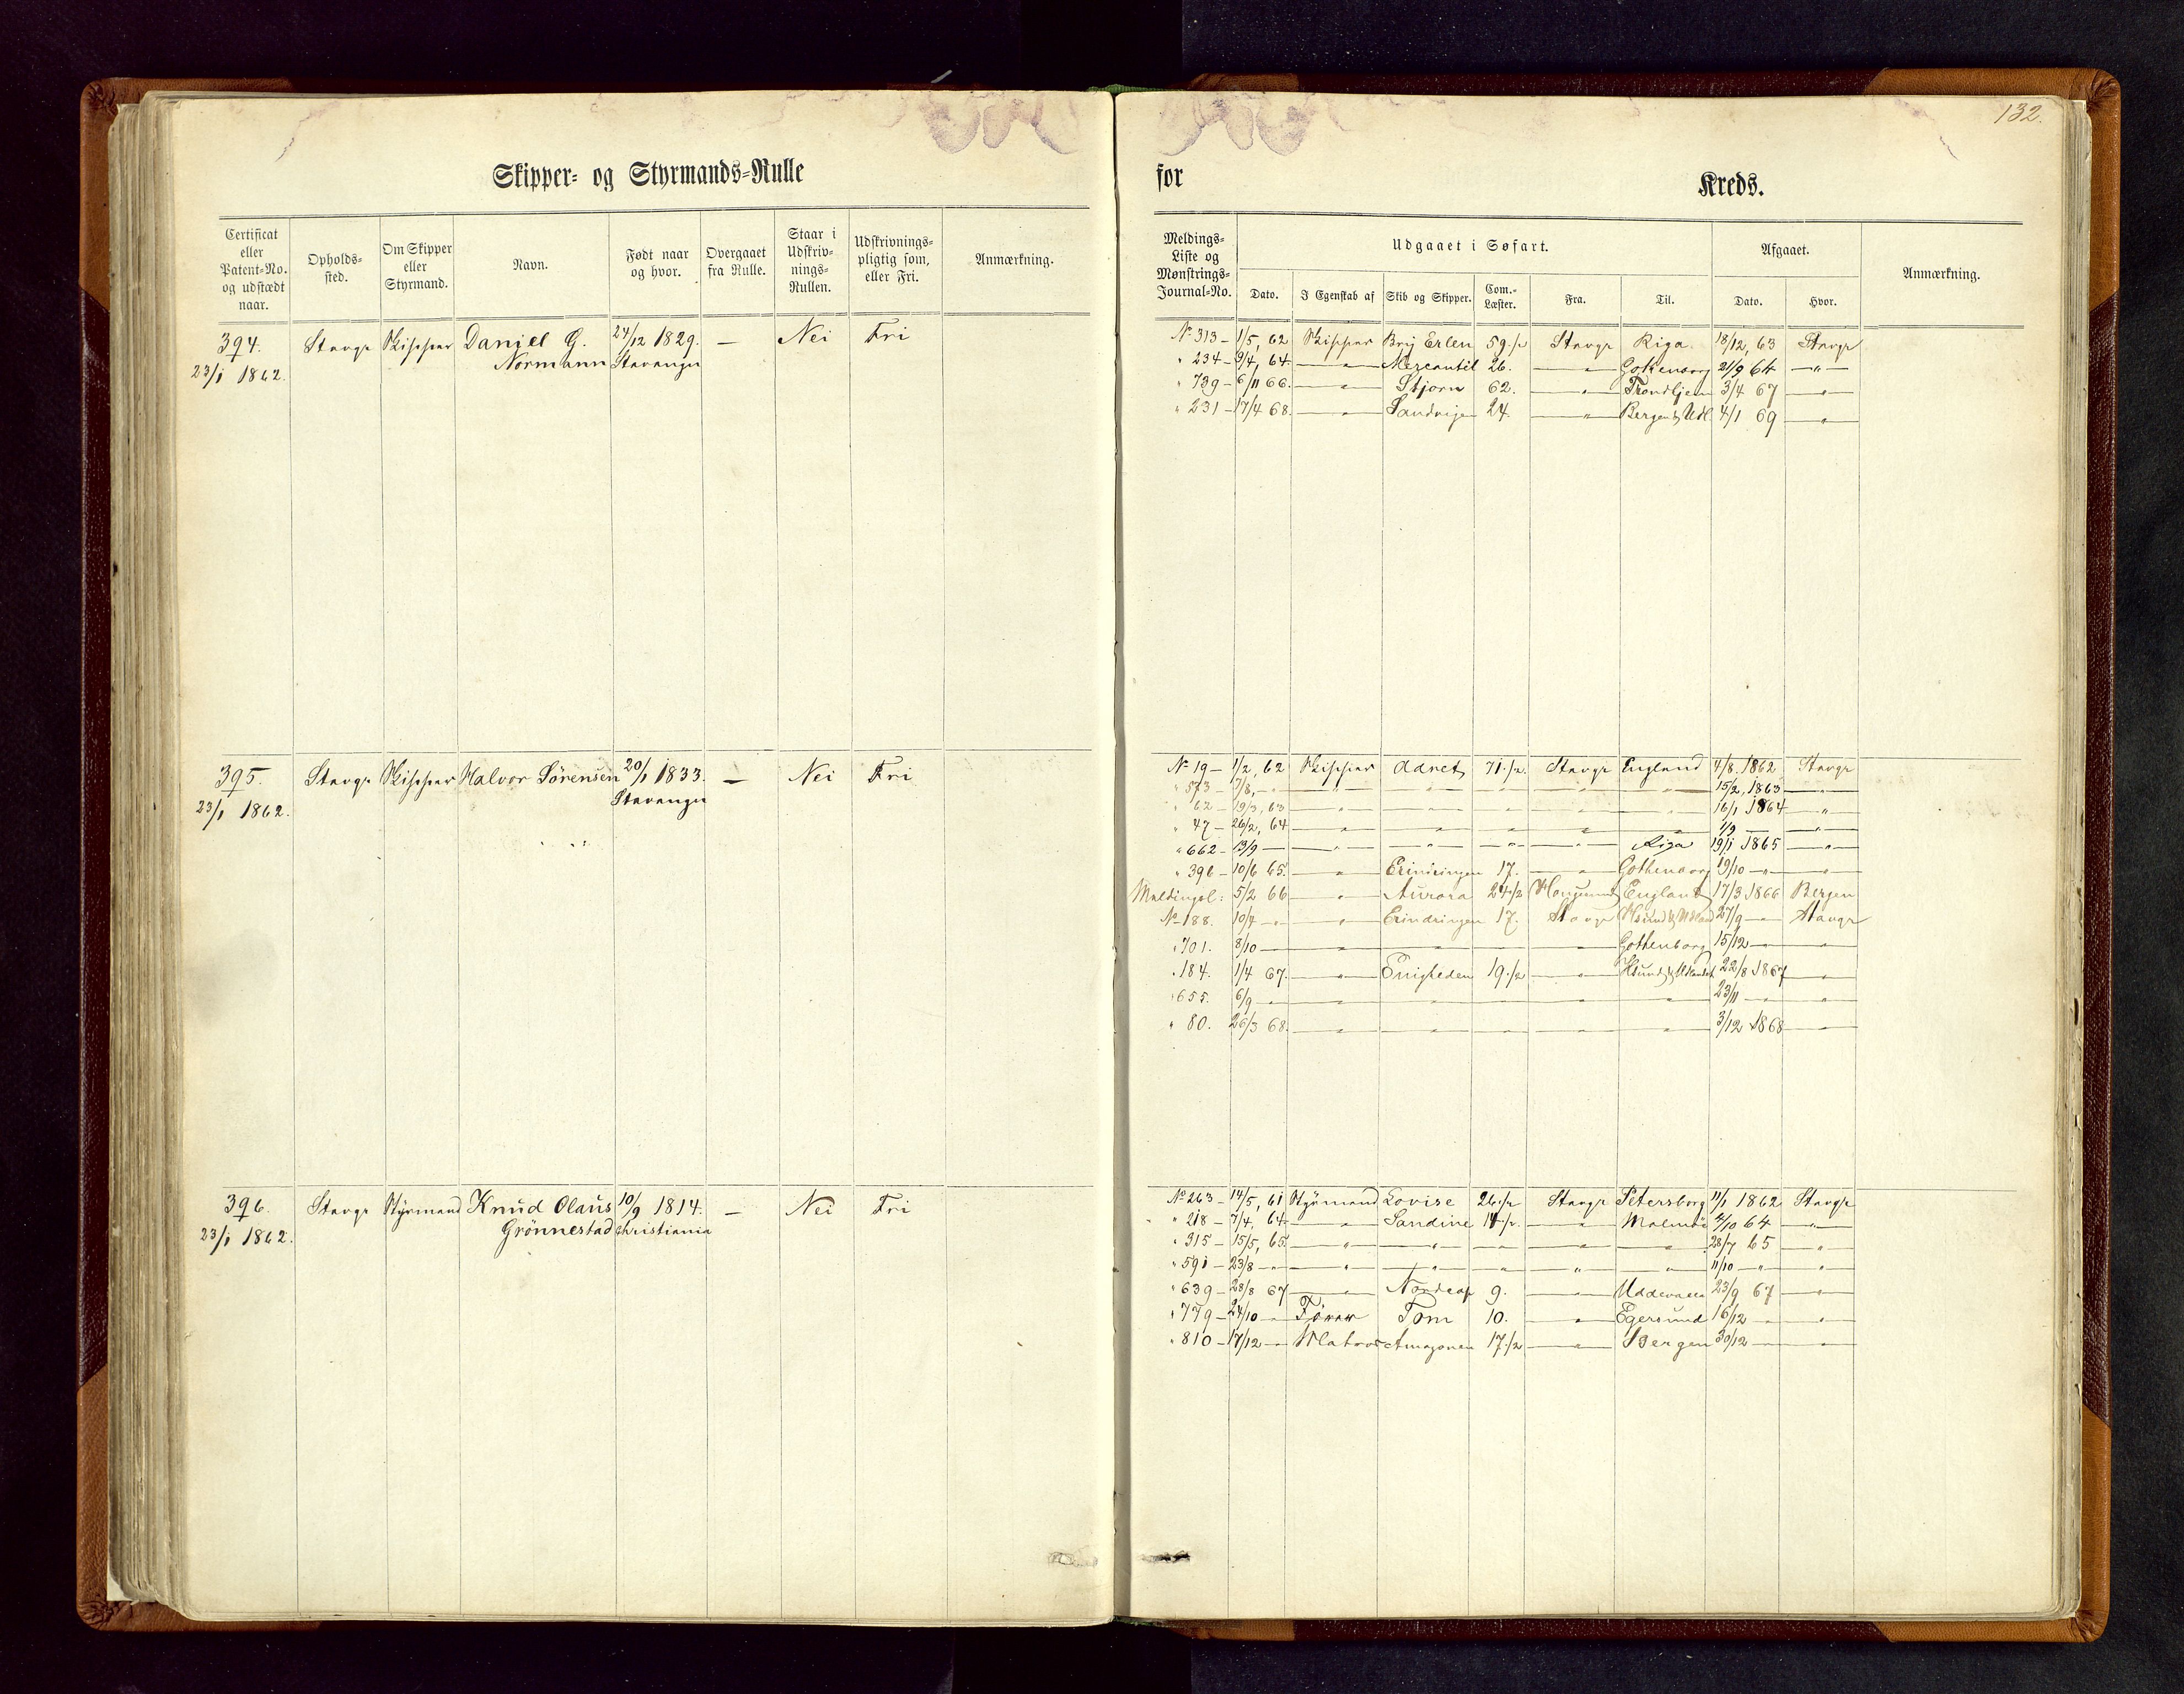 132.
Skipper- og Styrmands-Rulle
for Kreds.
Certificat eller Patent-No. og udstædt naar. Opholds-sted. Om Skipper eller Styrmand. Navn. Født naar og hvor. Overgaaet fra Rulle. Staar i Udskriv-nings-Rullen. Udskrivnings-pligtig som, eller Fri. Anmærkning.
Meldings-Liste og Mønstrings-Journal-No. Udgaaet i Søfart. Afgaaet. Anmærkning.
Dato. I Egenskab af Skib og Skipper. Com.-Læster. Fra. Til. Dato. Hvor.
394. Stavgr Skipper Daniel G. 24/12 1829. — Nei Fri
23/1 1862. Normann Stavanger
No 313 – 1/5, 62 Skipper Brig Erlen 59 1/2 Stavgr Riga 18/12, 63 Stavgr
" 234 – 9/4, 64 — " — Mercantil 26. — " — Gotenborg 21/9 64 — " —
" 739 – 6/11 66. — " — Stjorn 62. — " — Trondhjem 3/4 67 — " —
" 231 – 17/4 68. — " — Sandvigen 24. — " — Bergen & Udl 4/1 69 — " —
395. Stavgr Skipper Halvor Sörensen 20/1 1833. — Nei Fri
23/1 1862. Stavanger
No 19 – 1/2, 62 Skipper 71 1/2 Stavgr England 4/8. 1862 Stavgr
" 573 – 7/8, – " — " — — " — — " — — " — — " — 15/2, 1863 — " —
" 62 – 19/3, 63 — " — — " — — " — — " — — " — 16/1 1864 — " —
" 47 – 26/2, 64 — " — — " — — " — — " — — " — 1/9 — — " —
" 662 – 13/9 — — " — — " — — " — — " — Riga 19/1 1865 — " —
" 396 – 10/6 65. — " — Erindringen 17. — " — Gothenborg 19/10 – " – — " —
Meldingsl: 5/2 66 — " — Aurora 24 1/2 Haugesund England 17/3 1866 Bergen
No 188. 10/4 – " – — " — Erindringen 17. Stavgr 27/9 — Stavgr
" 701. 8/10 — — — — — Gothenborg 15/12 — — " —
" 184. 1/4 67. — " — Enigheden 19 1/2 — " — 22/8 1867 — " —
" 655. 6/9 – " – — " — — " — — " — — " — — " — 23/11 – " – — " —
" 80. 26/3 68. — " — — " — — " — — " — — " — 3/12 1868 — " —
396. Stavgr Styrmand Knud Olaus 10/9 1814. — Nei Fri
23/1 1862. Grönnestad Christiania
No 263 – 14/5, 61 Styrmand Lovise 26 1/2 Stavgr Petersborg 11/1 1862 Stavgr
" 218 – 7/4, 64 — " — Sandine 14 1/2 — " — Malmö 2/10 64 — " —
" 315 – 15/5, 65. — " — — " — — " — — " — — " — 28/7 65 — " —
" 591 – 23/8 – " – — " — — " — — " — — " — — " — 11/10 – " – — " —
" 639 – 28/8 67 — " — Nordcap 9. — " — Uddevalla 23/9 67 — " —
" 779 – 24/10 – " – Förer Tom 10. — " — Egersund 16/12 – " – — " —
" 810 – 17/12 – " – Matros Amazonen 17 1/2 — " — Bergen 30/12 — — " —